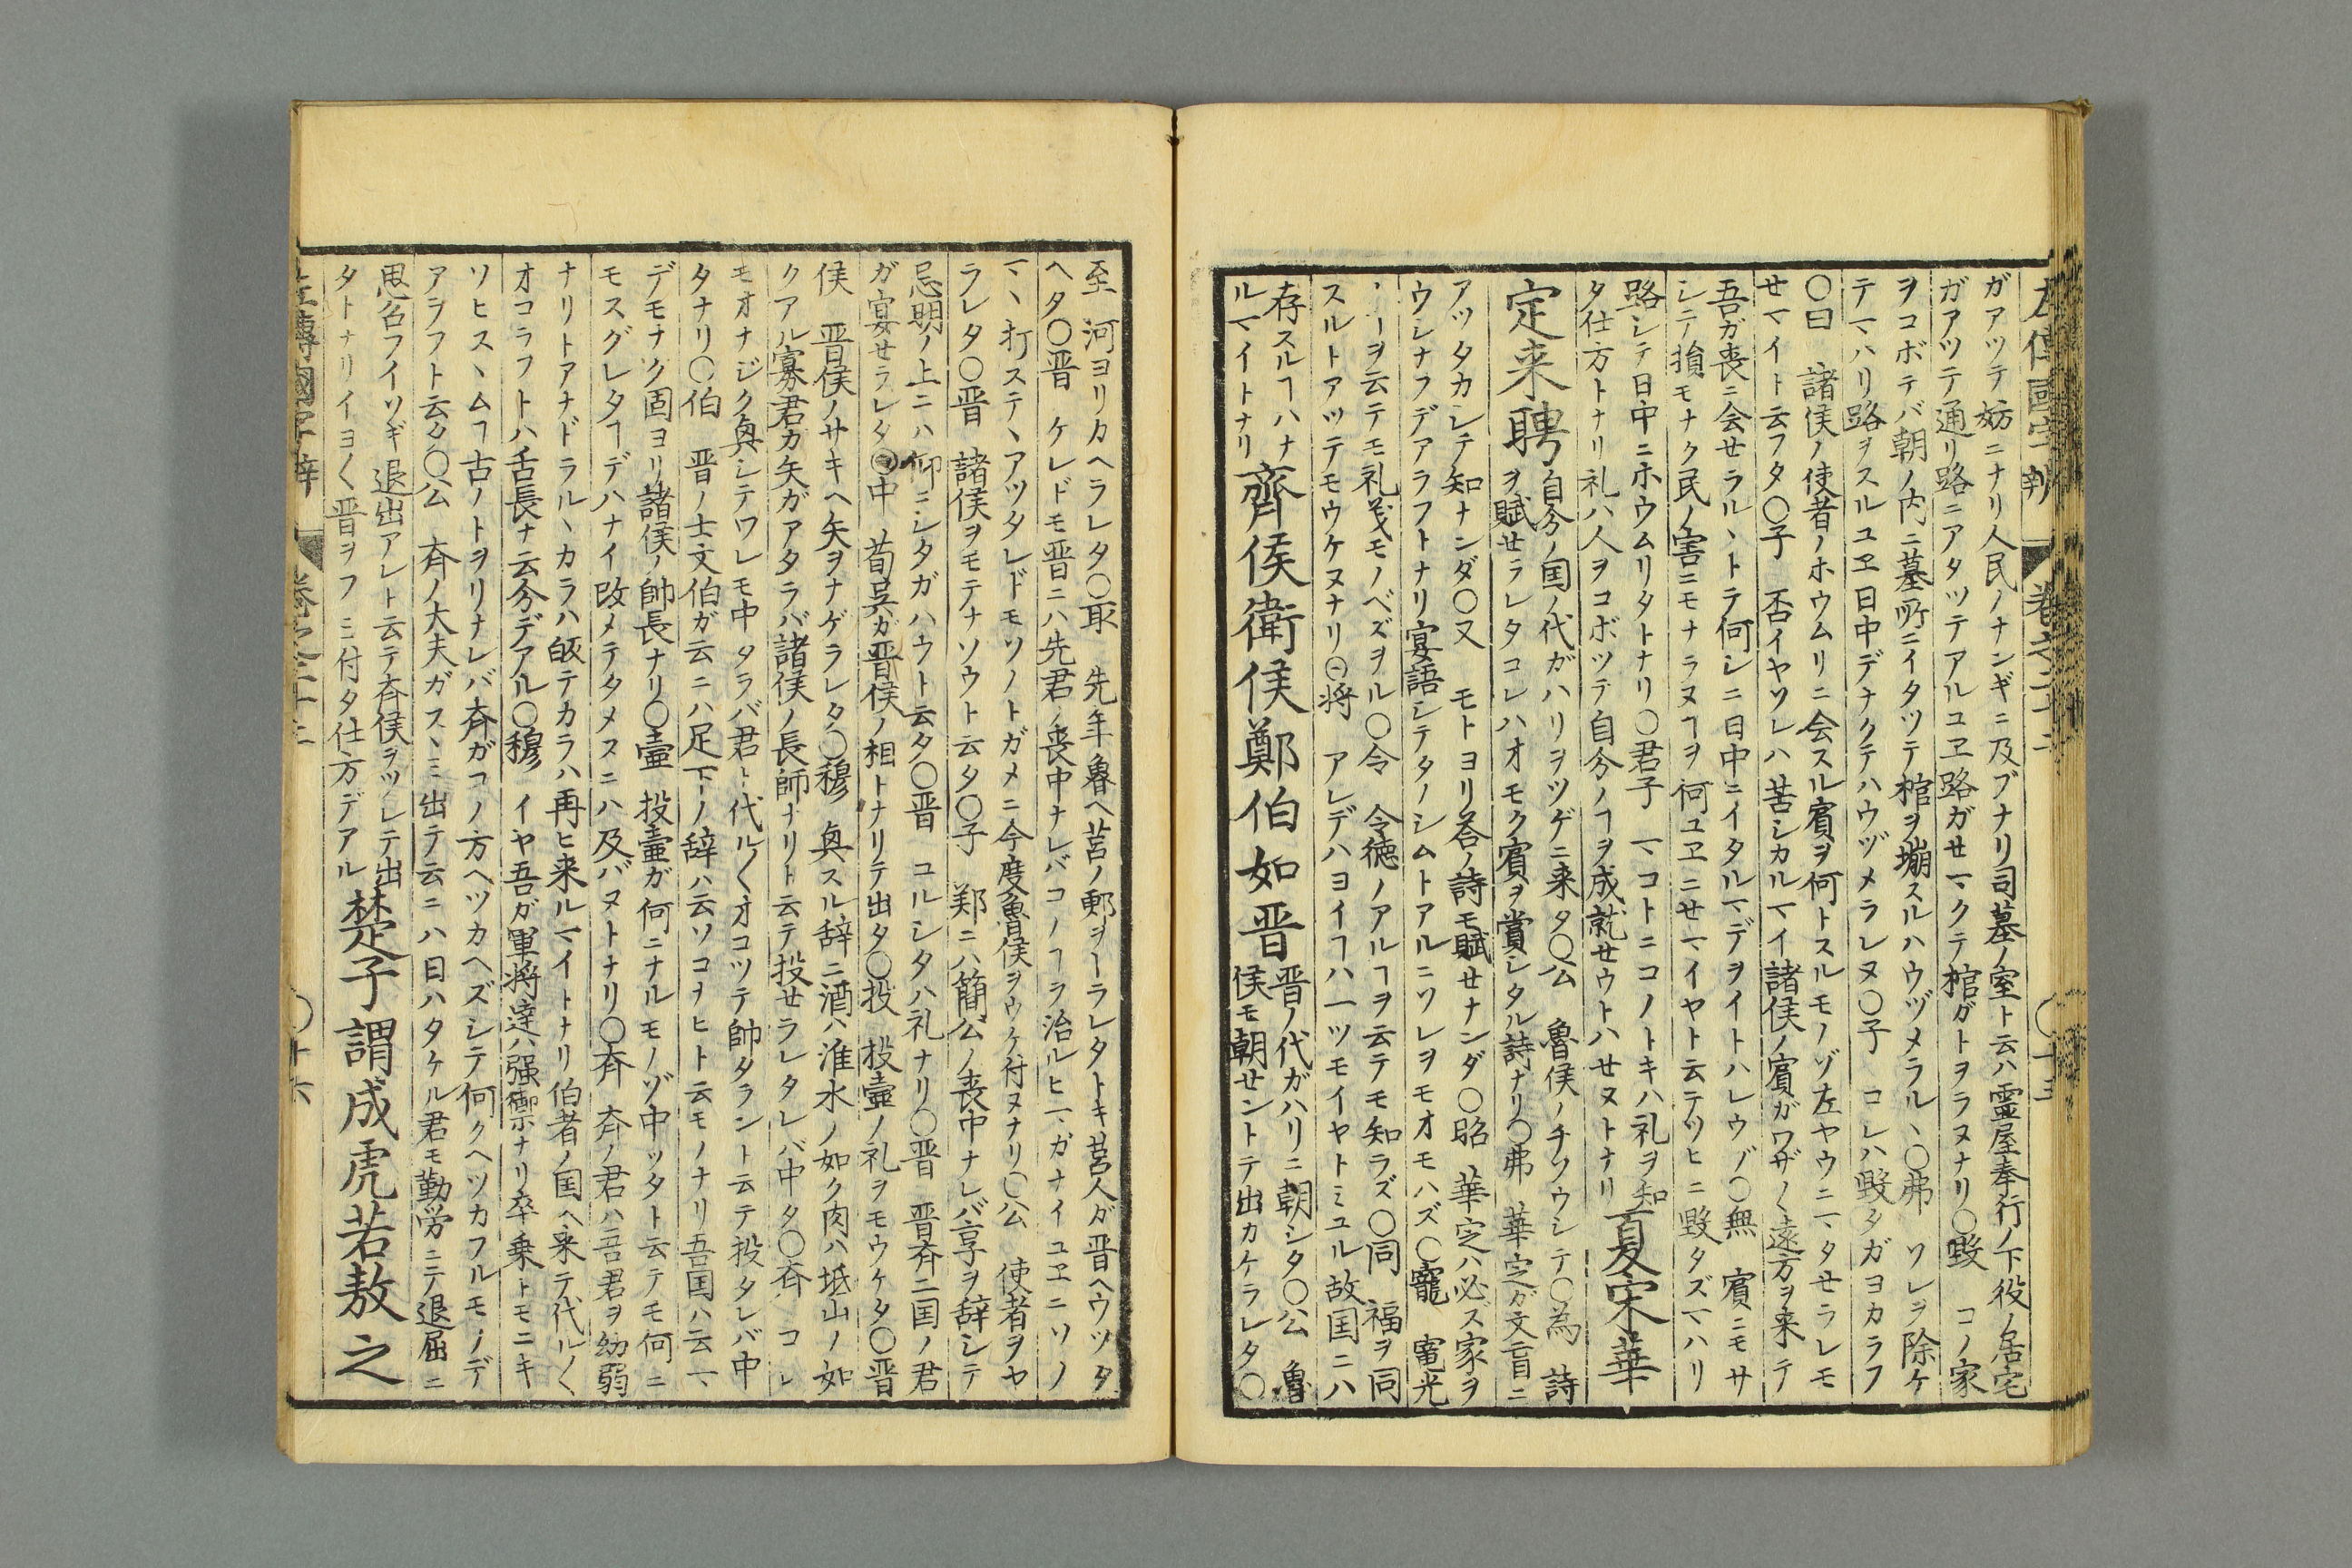 左傳國字辯 巻之二十二 〇十五
ガアツテ妨ニナリ人民ノナンギニ及ブナリ司墓ノ室ト云ハ霊屋奉行ノ下役ノ居宅
ガアツテ通リ路ニアタツテアルユヱ路ガせマクテ棺ガトヲラヌナリ〇毀 コノ家
ヲコボテバ朝ノ内ニ墓所ニイタツテ棺ヲ塴スルハウヅメラル、〇弗 ソレヲ除ケ
テマハリ路ヲスルユヱ日中デナクテハウヅメラレヌ〇子 コレハ毀タガヨカラフ
〇曰 諸侯ノ使者ノホウムリニ会スル賓ヲ何トスルモノゾ左ヤウニマタせラレモ
せマイト云フタ〇子 否イヤソレハ苦シカルマイ諸侯ノ賓ガワザ〱遠方ヲ来テ
吾ガ喪ニ会せラル、トテ何シニ日中ニイタルマデヲイトハレウゾ〇無 賓ニモサ
シテ損モナク民ノ害ニモナラヌヿヲ何ユヱニせマイヤト云テツヒニ毀タズマハリ
路シテ日中ニホウムリタトナリ〇君子 マコトニコノトキハ礼ヲ知
タ仕方トナリ礼ハ人ヲコボツテ自分ノヿヲ成就せウトハせヌトナリ 夏宋華
定来聘 自分ノ国ノ代ガハリヲツゲニ来タ〇公 魯侯ノチソウシテ〇為 詩
ヲ賦せラレタコレハオモク賓ヲ賞シタル詩ナリ〇弗 華定ガ文盲ニ
アツタカシテ知ナンダ〇又 モトヨリ答ノ詩モ賦せナンダ〇昭 華定ハ必ズ家ヲ
ウシナフデアラフトナリ宴語シテタノシムトアルニソレヲモオモハズ〇寵 寵光
ヲ云テモ礼義モノベズヲル〇令 令徳ノアルヿヲ云テモ知ラズ〇同 福ヲ同
スルトアツテモウケヌナリ〇将 アレデハヨイヿハ一ツモイヤトミユル故国ニハ
存スルヿハナ
ルマイトナリ 齊侯衛侯鄭伯如晋 晋ノ代ガハリニ朝シタ〇公 魯
侯モ朝せントテ出カケラレタ〇
至 河ヨリカヘラレタ〇取 先年魯ヘ莒ノ郠ヲトラレタトキ莒人ガ晋ヘウツタ
ヘタ〇晋 ケレドモ晋ニハ先君ノ喪中ナレバコノヿヲ治ルヒマガナイユヱニソノ
マ、打ステ、アツタレドモソノトガメニ今度魯侯ヲウケ付ヌナリ〇公 使者ヲヤ
ラレタ〇晋 諸侯ヲモテナソウト云タ〇子 鄭ニハ簡公ノ喪中ナレバ享ヲ辞シテ
忌明ノ上ニハ仰ニシタガハウト云タ〇晋 ユルシタハ礼ナリ〇晋 晋斉二国ノ君
ガ宴せラレタ〇中 荀呉ガ晋侯ノ相トナリテ出タ〇投 投壷ノ礼ヲモウケタ〇晋
侯 晋侯ノサキヘ矢ヲナゲラレタ〇穆 奥スル辞ニ酒ハ淮水ノ如ク肉ハ坻山ノ如
クアル寡君カ矢ガアタラバ諸侯ノ長師ナリト云テ投せラレタレバ中タ〇斉 コレ
モオナジク奥シテワレモ中タラバ君ト代ル〱オコツテ帥タラント云テ投タレバ中
タナリ〇伯 晋ノ士文伯ガ云ニハ足下ノ辞ハ云ソコナヒト云モノナリ吾国ハ云マ
デモナク固ヨリ諸侯ノ帥長ナリ〇壷 投壷ガ何ニナルモノゾ中ツタト云テモ何ニ
モスグレタヿデハナイ改メテタメヌニハ及バヌトナリ〇斉 斉ノ君ハ吾君ヲ幼弱
ナリトアナドラル、カラハ皈テカラハ再ヒ来ルマイトナリ伯者ノ国ヘ来テ代ル〱
オコラフトハ舌長ナ云分デアル〇穆 イヤ吾ガ軍将達ハ强禦ナリ卒乗トモニキ
ソヒス、ムヿ古ノトヲリナレバ斉ガコノ方ヘツカヘズシテ何クヘツカフルモノデ
アラフト云タ〇公 斉ノ大夫ガス、ミ出テ云ニハ日ハタケル君モ勤労ニテ退屈ニ
思召フイソギ退出アレト云テ斉侯ヲツレテ出
タトナリイヨ〱晋ヲフミ付タ仕方デアル 楚子謂成虎若敖之
左傳國字辯 巻之二十二 〇十六